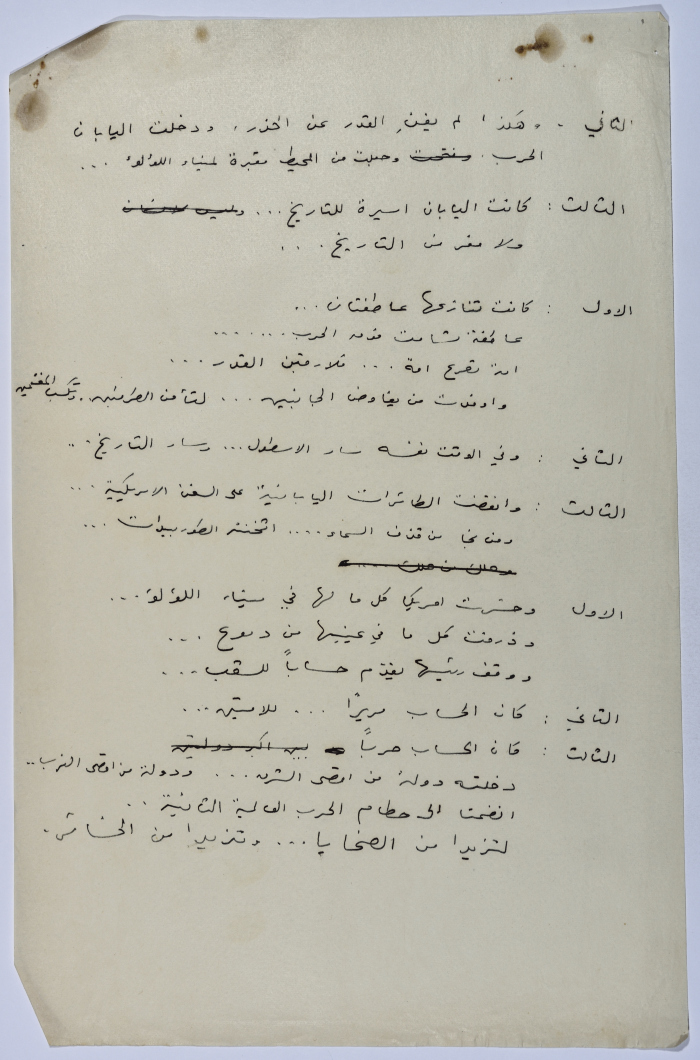 الثاني : وهكذا لم يغنِ القدر عن الحذر، ودخلت اليابان
الحرب . وجعلت من المحيط مقبرة لميناء اللؤلؤ ...
الثالث : كانت اليابان اسيرة للتاريخ ...
ولا مفر من التاريخ ...
الاول : كانت تتنازعها عاطفتان ...
عاطفة شاءت الحرب ......
امة تصرع امة ... القدر ...
واوفدت من يفاوض الجانبين ... لتأمن الطرفين .. وتكسب المغنمين
الثاني : وفي الوقت نفسه سار الاسطول ... وسار التاريخ ..
الثالث : وانقضت الطائرات اليابانية على السفن الامريكية ...
ومن نجا من قذف السماء .... اثخنته الطوربيدات ...
الاول وخسرت امريكا كل ما لها في ميناء اللؤلؤ ...
وذرفت كل ما في عينيها من دموع ...
ووقف رئيسها يقدّم حساباً للشعب ...
الثاني : كان الحساب مريرًا ... للامتين ...
الثالث : كان الحساب حرباً بين اكبر دولتين
دخلته دولة من اقصى الشرق ... ودولة من اقصى الغرب ..
انضمتا الى حطام الحرب العالمية الثانية ..
لتزيدا من الضحايا ... وتزيدا من الخسائر .